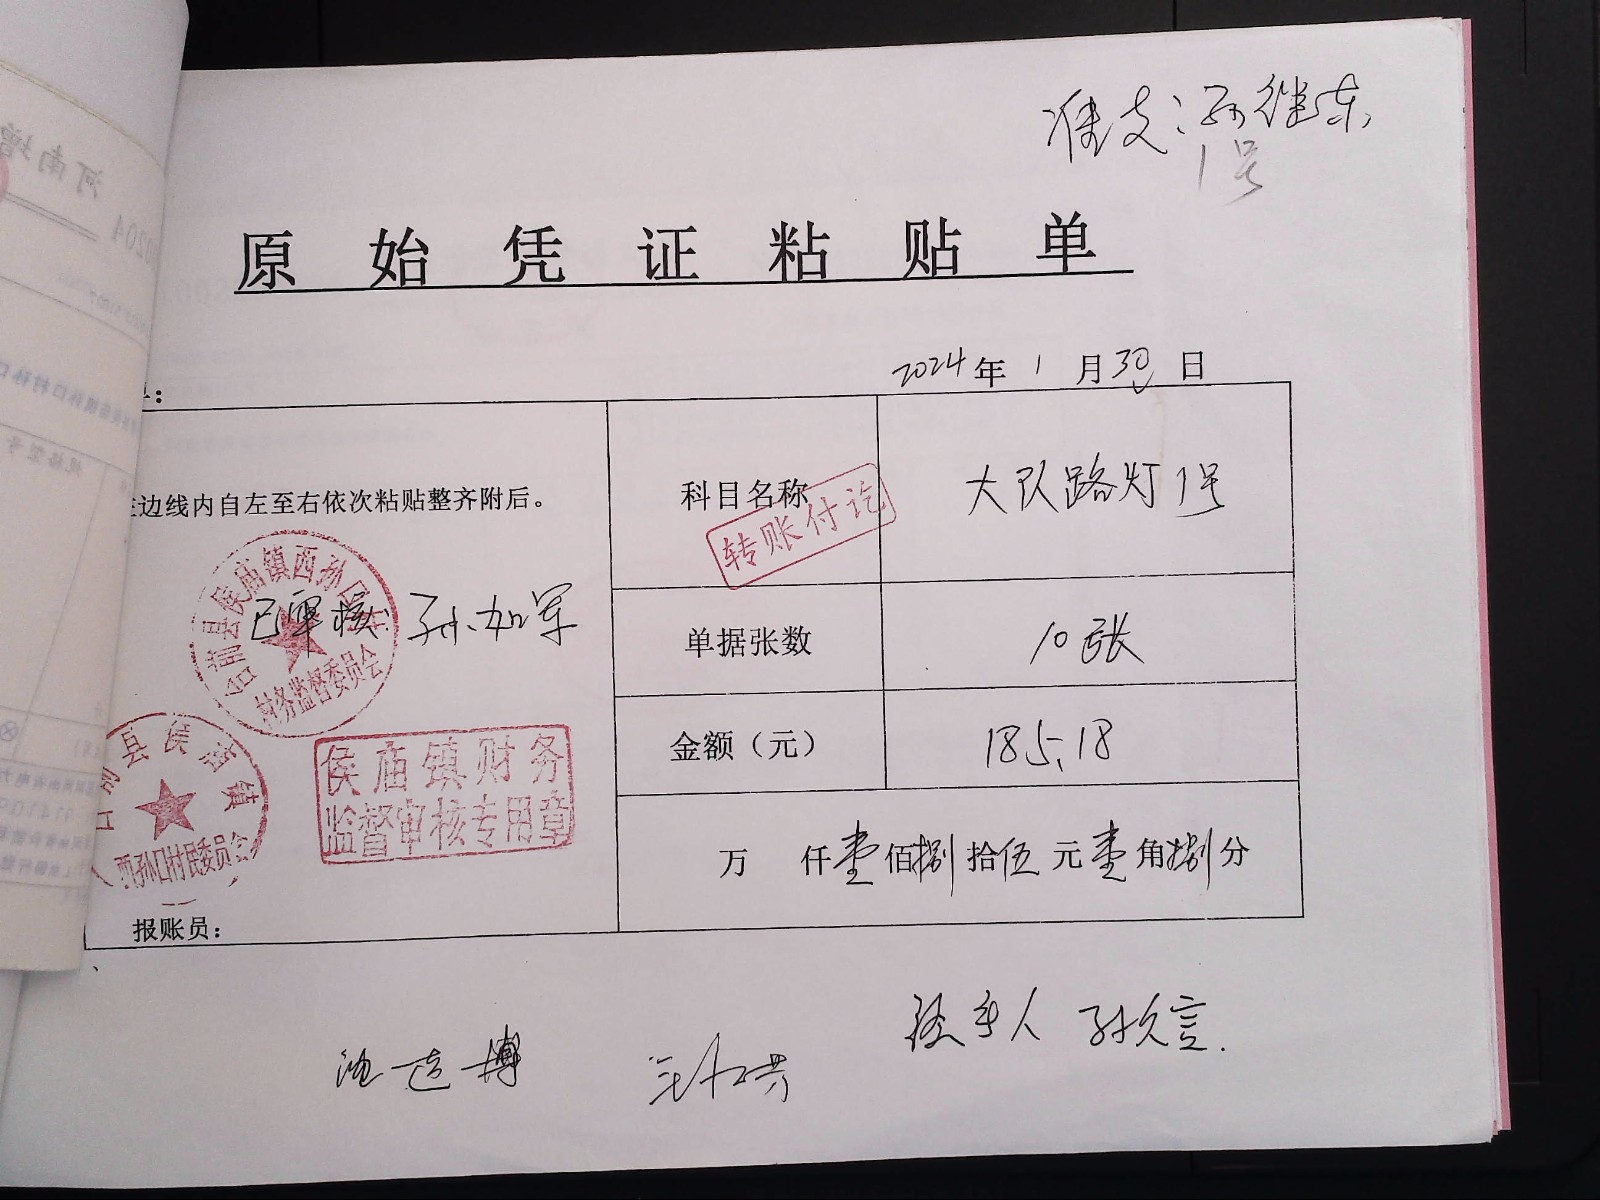 准支:孙继东
1号
原始凭证粘贴单
2024年1月30日
边线内自左至右依次粘贴整齐附后。
科目名称
大队路灯1号
转账付讫
台前县侯庙镇西孙口村
村务监督委员会
已审核:孙加军
单据张数
10张
金额（元）
185.18
侯庙镇财务
监督审核专用章
县侯庙镇
西孙口村民委员会
万 仟壹佰捌拾伍元壹角捌分
报账员：
经手人 孙久言.
河南增